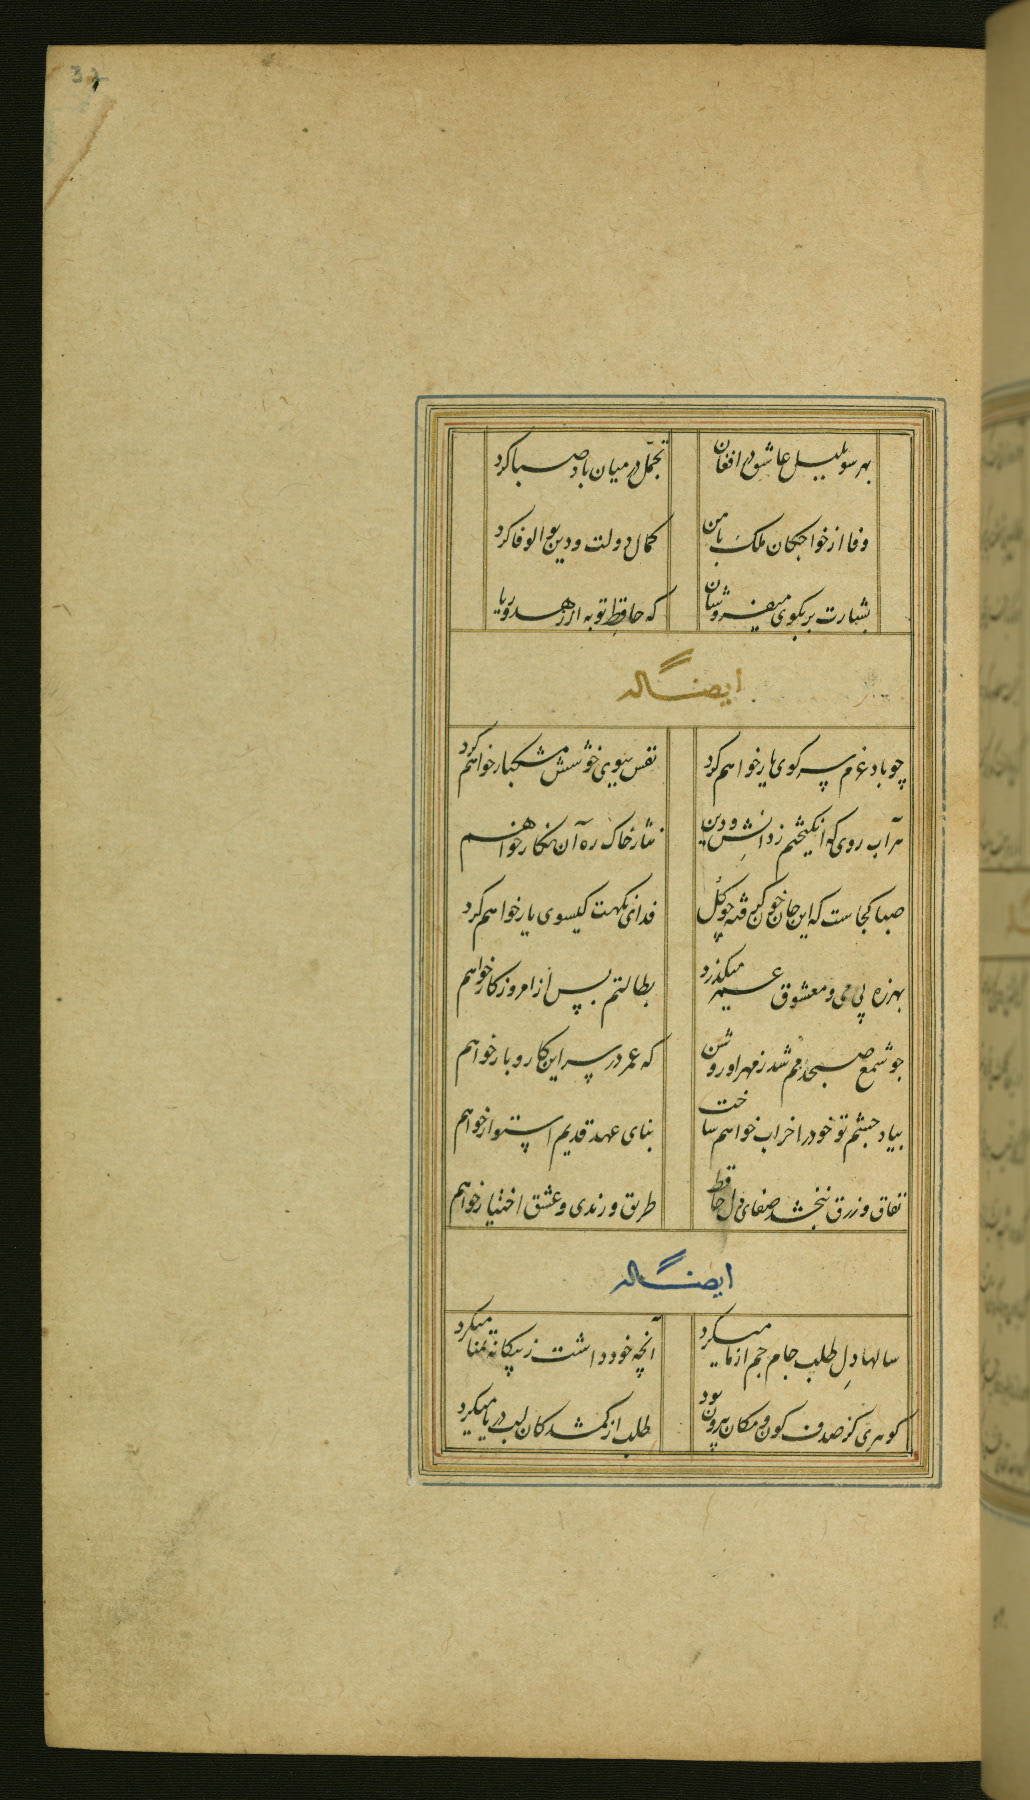 بهر سو بلبل عاشق در افغان
تجمّل در میان باد صبا کرد
وفا از خواجگان ملک با من
کمال دولت و دین بو الوفا کرد
بشارت بر بکوی میفروشان
که حافظ توبه از زهد و ریا
ایضاله
چو باد عزم سر کوی یار خواهم کرد
نفس ببوی خوشش مشکبار خواهم کرد
هر آب روی که اندیکختم ز دانش و دین
نثار خاک ره آن نکار خواهم
صبا کجاست که این جان خون کرفته چو کل
فدای نکهت کیسوی یار خواهم کرد
بهرزه پی می و معشوق عمر میکذرد
بطالتم بس از امروز کار خواهم
چو شمع صبحدمم شد ز مهر او روشن
که عمر در سر این کار و بار خواهم
بیاد چشم تو خود را خراب خواهم ساخت
بنای عهد قدیم استوار خواهم
نفاق و زرق نبخشد صفای دل حافظ
طریق و رندی و عشق اختیار خواهم
ایضاله
سالها دل طلب جام جم از ما میکرد
آنچه خود داشت ز بیکانه تمنا میکرد
کوهری کز صدف کون و مکان بیرون بود
طلب از کمشدکان لب دریا میکرد